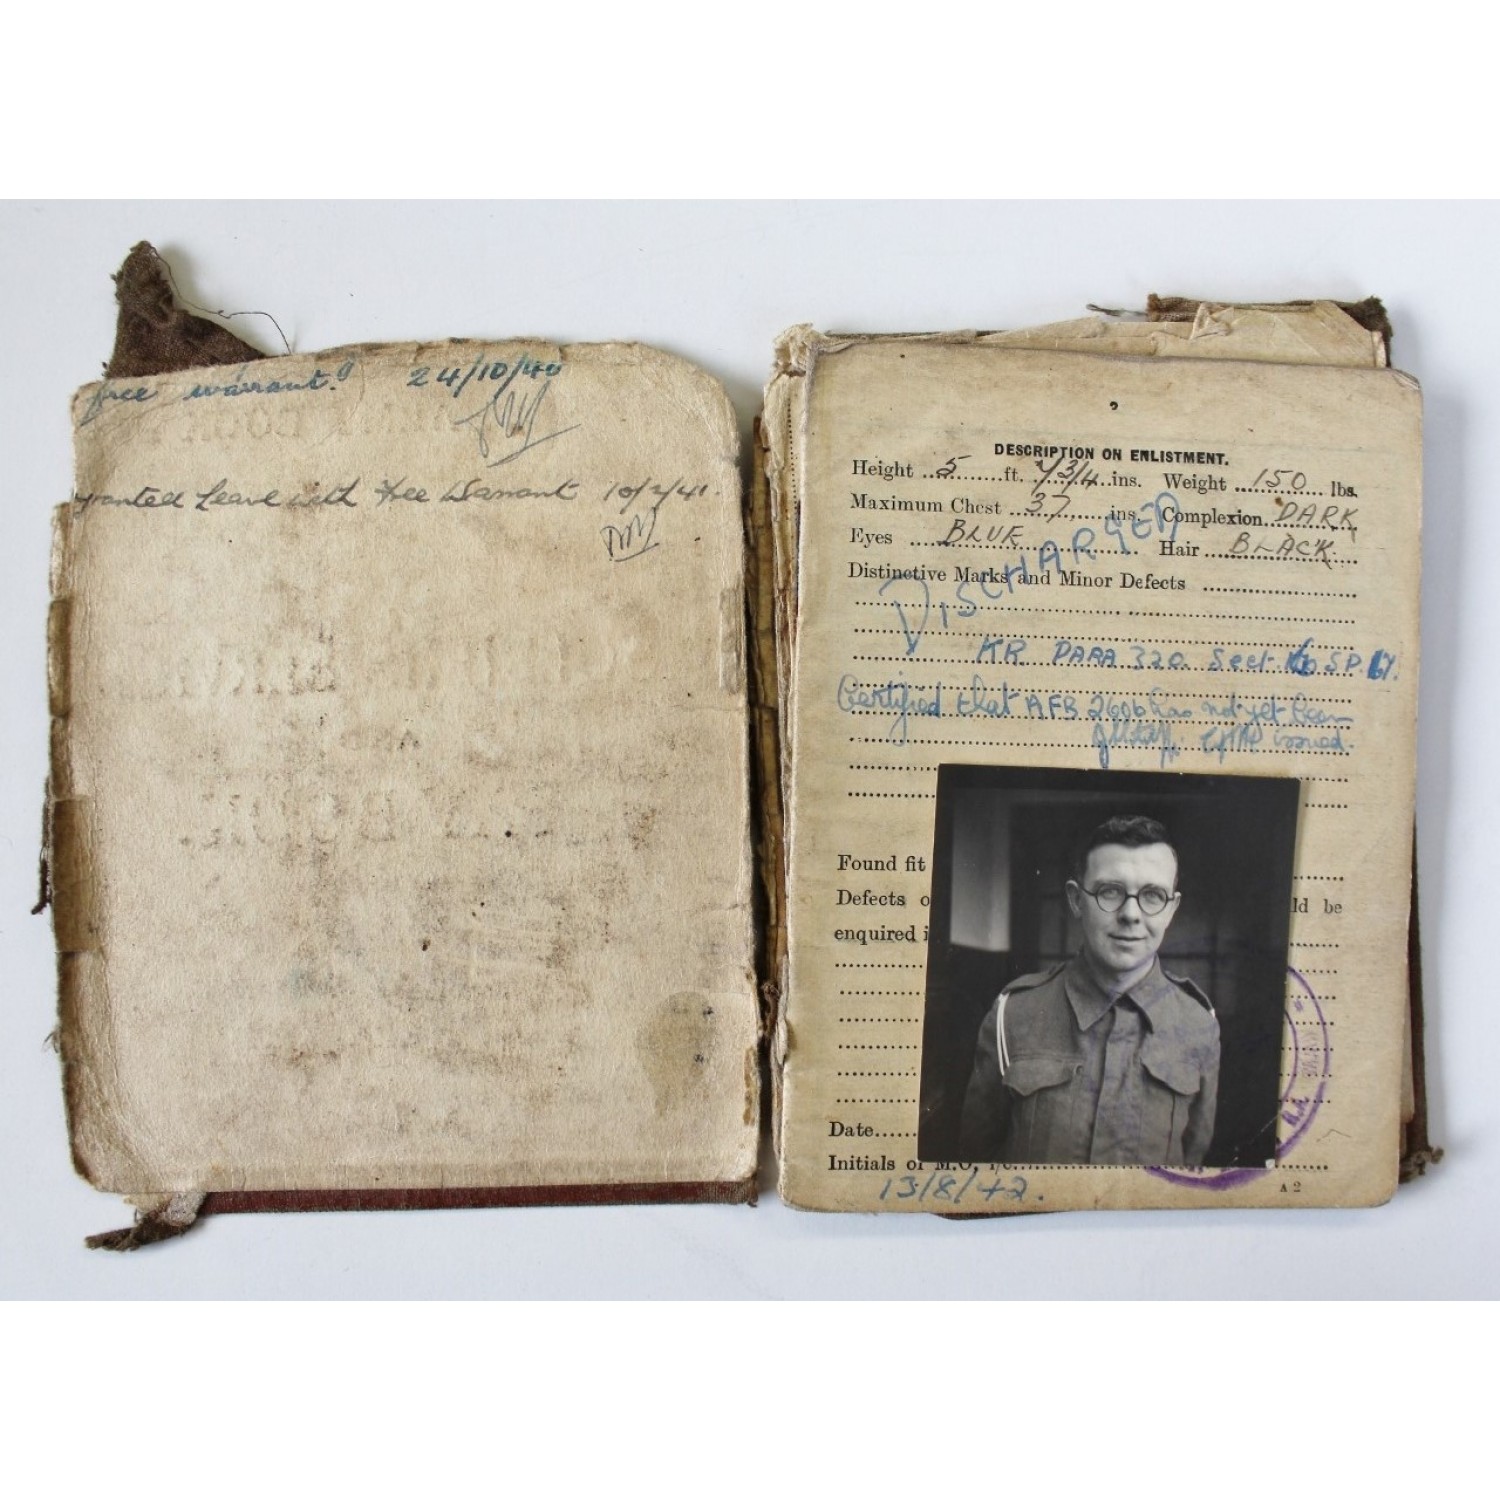 free warrant. 24/10/40
granted Leave with Free Warrant 10/2/41.
2
DESCRIPTION ON ENLISTMENT.
Height 5 ft. 7 3/4 ins. Weight 150 lbs.
Maximum Chest 37 ins. Complexion DARK
Eyes BLUE Hair BLACK.
Distinctive Marks and Minor Defects
DISCHARGED
KR PARA 320. Sect. SP.
Certified that AFB 2606 has not yet been
issued.
Found fit
Defects o ld be
enquired i
Date
Initials of M.O. i/c
13/8/42.
A 2